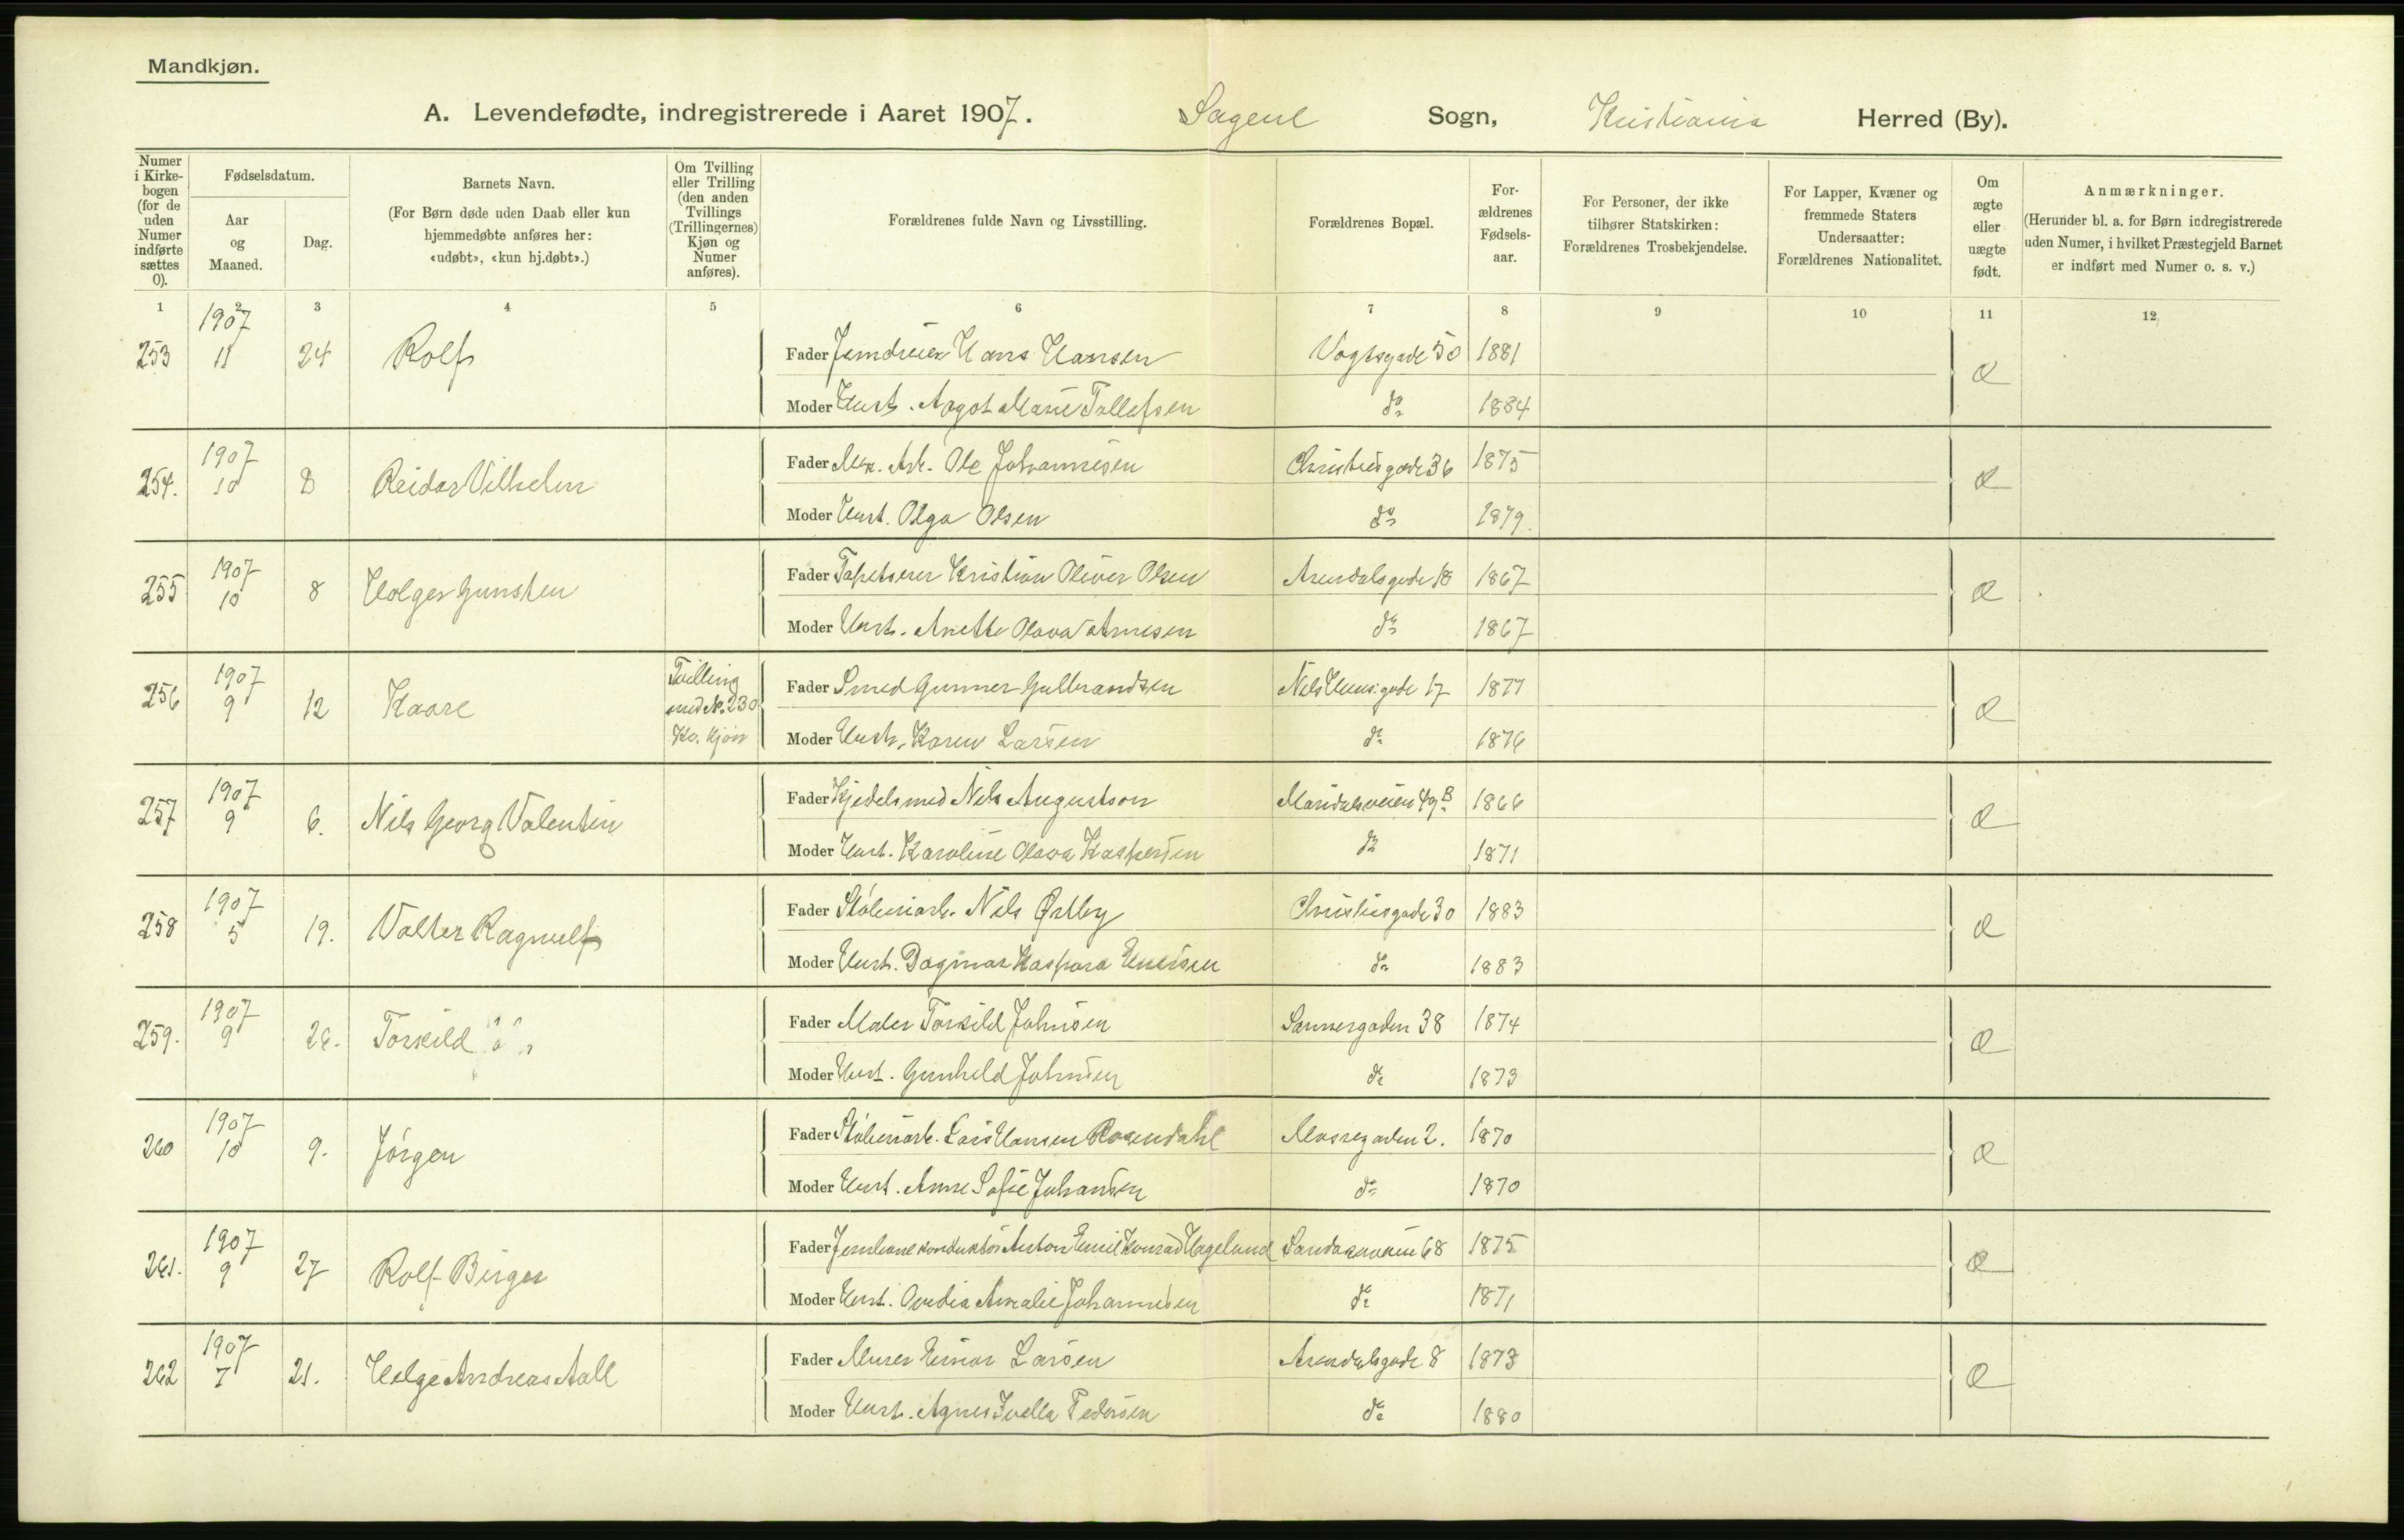 Mandkjøn.
A. Levendefødte, indregistrerede i Aaret 1907. Sagene Sogn, Kristiania Herred (By).
Numer i Kirkebogen (for de uden Numer indførte sættes 0).
Fødselsdatum.
Aar og Maaned.
Dag.
Barnets Navn.
(For Børn døde uden Daab eller kun hjemmedøbte anføres her: «udøbt», «kun hj.døbt».)
Om Tvilling eller Trilling (den anden Tvillings (Trillingernes) Kjøn og Numer anføres).
Forældrenes fulde Navn og Livsstilling.
Forældrenes Bopæl.
Forældrenes Fødselsaar.
For Personer, der ikke tilhører Statskirken: Forældrenes Trosbekjendelse.
For Lapper, Kvæner og fremmede Staters Undersaatter: Forældrenes Nationalitet.
Om ægte eller uægte født.
Anmærkninger.
(Herunder bl. a. for Børn indregistrerede uden Numer, i hvilket Præstegjeld Barnet er indført med Numer o. s. v.)
1 2 3 4 5 6 7 8 9 10 11 12
253 1907 11 24 Rolf Fader Jerndreier Hans Hansen Vogtsgade 50 1881 Æ
Moder Hust. Argot Marie Tollefsen do 1884
254. 1907 10 8 Reidar Vilhelm Fader Mek. Arb. Ole Johannesen Christiesgade 36 1875 Æ
Moder Hust. Olga Olsen do 1879.
255 1907 10 8 Holger Gunsten Fader Tapetserer Kristian Oliver Olsen Arendalsgade 18 1867 Æ
Moder Hust. Anette Olava Arnesen do 1867
256 1907 9 12 Kaare Tvilling med No. 230 Kv. kjøn Fader Smed Gunner Gulbrandsen Nils Huusgade 17 1877 Æ
Moder Hust. Karen Larsen do 1876
257 1907 9 6. Nils Georg Valentin Fader Kjedelsmed Nils Augustson Maridalsveien 49 B 1866 Æ
Moder Hust. Karoline Olava Kaspersen do 1871
258 1907 5 19. Valter Ragnulf Fader Støberiarb. Nils Østby Christiesgade 30 1883 Æ
Moder Hust. Dagmar Kaspara do 1883
259. 1907 9 26. Torkild Fader Maler Torkild Johnsen Sannergaden 38 1874 Æ
Moder Hust. Gunhild Johnsen do 1873
260 1907 10 9. Jørgen Fader Støberiarb. Lars Hansen Rosendahl Mossegaden 2. 1870 Æ
Moder Hust. Anne Sofie Johansen do 1870
261. 1907 9 27 Rolf Birger Fader Jernbanekonduktør Anton Emil Konrad Hagelund Sandakerveien 68 1875 Æ
Moder Hust. Ovedia Amalie Johannesen do 1871
262 1907 7 21. Helge Andreas Aall Fader Murer Einar Larsen Arendalsgade 8 1873 Æ
Moder Hust. Agnes Ivella Pedersen do 1880